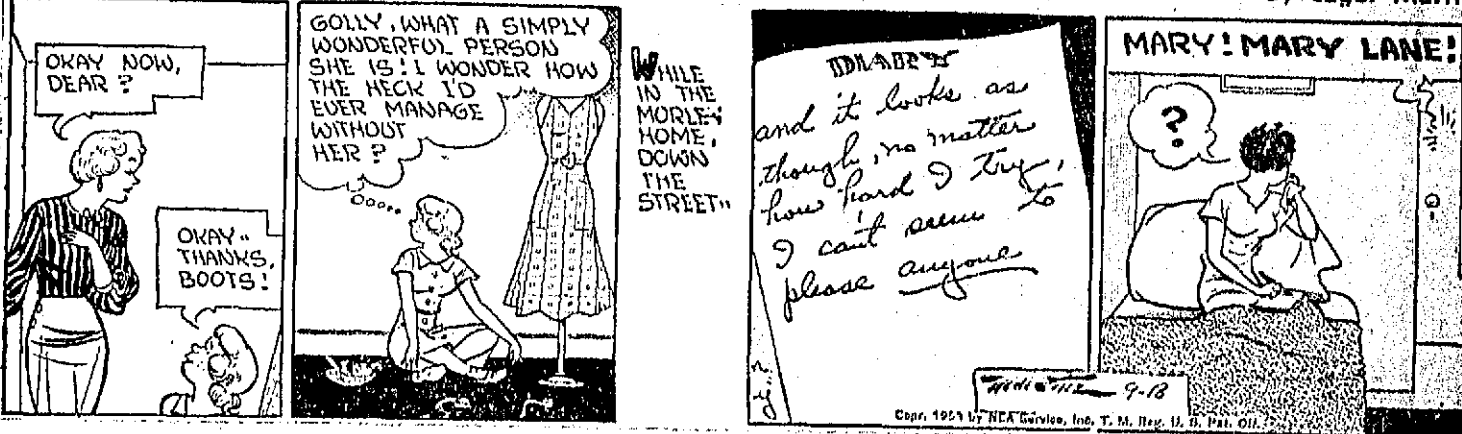 OKAY NOW,
DEAR?
OKAY..
THANKS,
BOOTS!
GOLLY, WHAT A SIMPLY
WONDERFUL PERSON
SHE IS! I WONDER HOW
THE HECK I'D
EVER MANAGE
WITHOUT
HER?
WHILE
IN THE
MORLEY
HOME,
DOWN
THE
STREET..
DIARY
and it looks as
though, no matter
how hard I try,
I can't seem to
please anyone
9-13
Copr. by NEA Service, Inc. T. M. Reg. U. S. Pat. Off.
MARY! MARY LANE!
?